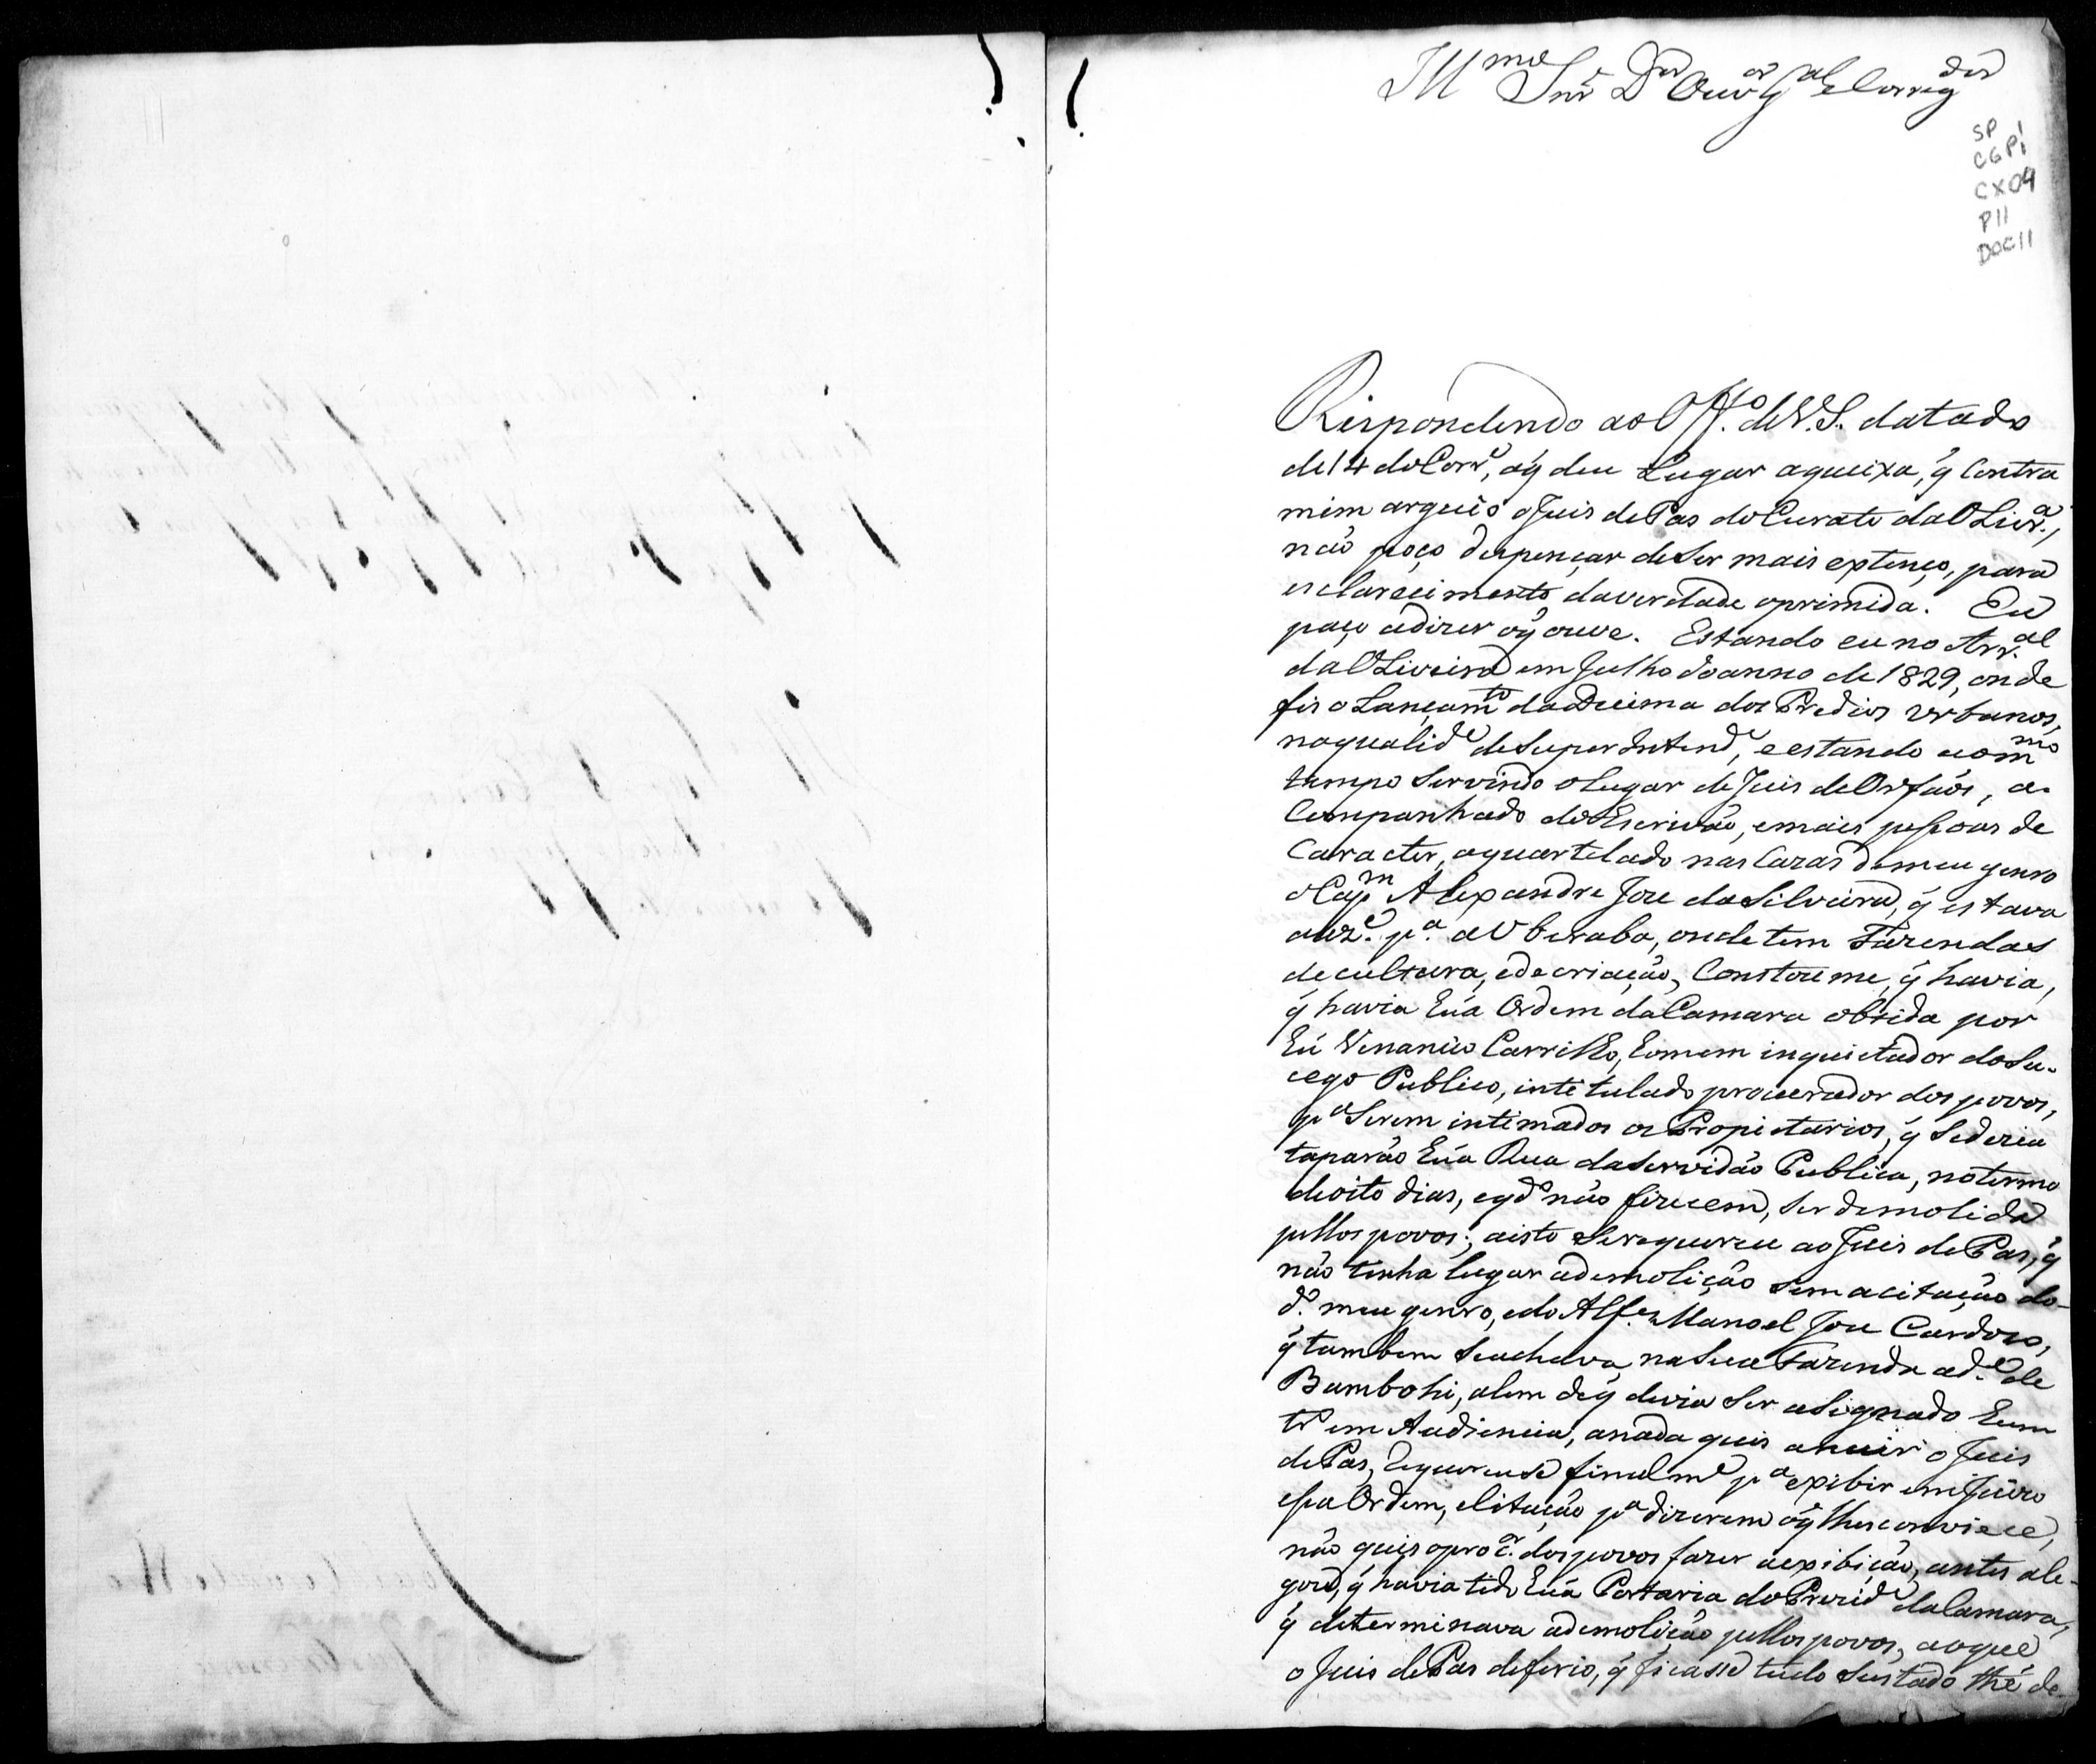 Illmo Snr Dor Ouvor Gal e Corregdor
SP
CGP1
CX04
P11
DOC11
Respondendo ao Offo. de V.S. datado
de 14 do Corre, a q̃ deu Lugar aqueixa, q̃ Contra
mim arguio o Juis de Pas do Curato da Olivra.,
não poço despençar de ser mais extenço, para
esclarecimento da verdade oprimida. Eu
paço adizer oq̃ ouve. Estando eu no Arral
da Oliveira em Julho do anno de 1829, onde
fis o Lançamto da Decima dos Predios Urbanos,
naqualide de Super Intende, e estando ao mmo
tempo Servindo o Lugar de Juis de Orfãos, a-
Companhado do Escrivão, emais pessoas de
Caracter, aquartelado nas Cazas de meu genro
o Capm Alexandre Joze da Silveira, q̃ estava
auze. pa. a Uberaba, onde tem Fazendas
de cultura, ede criação, Constoume, q̃ havia,
q̃ havia hũa Ordem da Camara obtida por
hũ Venancio Carrilho, homem inquietador do Su-
cego Publico, intetulado procurador dos povos,
pa Serem intimados os Propietarios, q̃ Sedezia
taparão hũa Rua da Servidão Publica, no termo
de oito dias, eqdo não fizecem, ser demolida
pellos povos; aisto Serequereu ao Juis de Pas, q̃
não tinha lugar ademolição sem acitação do
do. meu genro, edo Alfes Manoel Joze Cardozo,
q̃ tambem Seachava na Sua Fazenda ade. de
Bambohi, alem deq̃ devia Ser asignado hum
to em Audiencia, anada quis anuir o Juis
de Pas, Requereuse finalme pa exibir em Juizo
essa Ordem, eCitação pa dizerem oq̃ lhes conviece,
não quis o procor. dos povos fazer aexibição, antes ale-
gou, q̃ havia tido hũa Portaria do Prezide da Camara,
q̃ determinava ademolição pellos povos, aoque
o Juis de Pas deferio, q̃ ficasse tudo Sustado thé de-